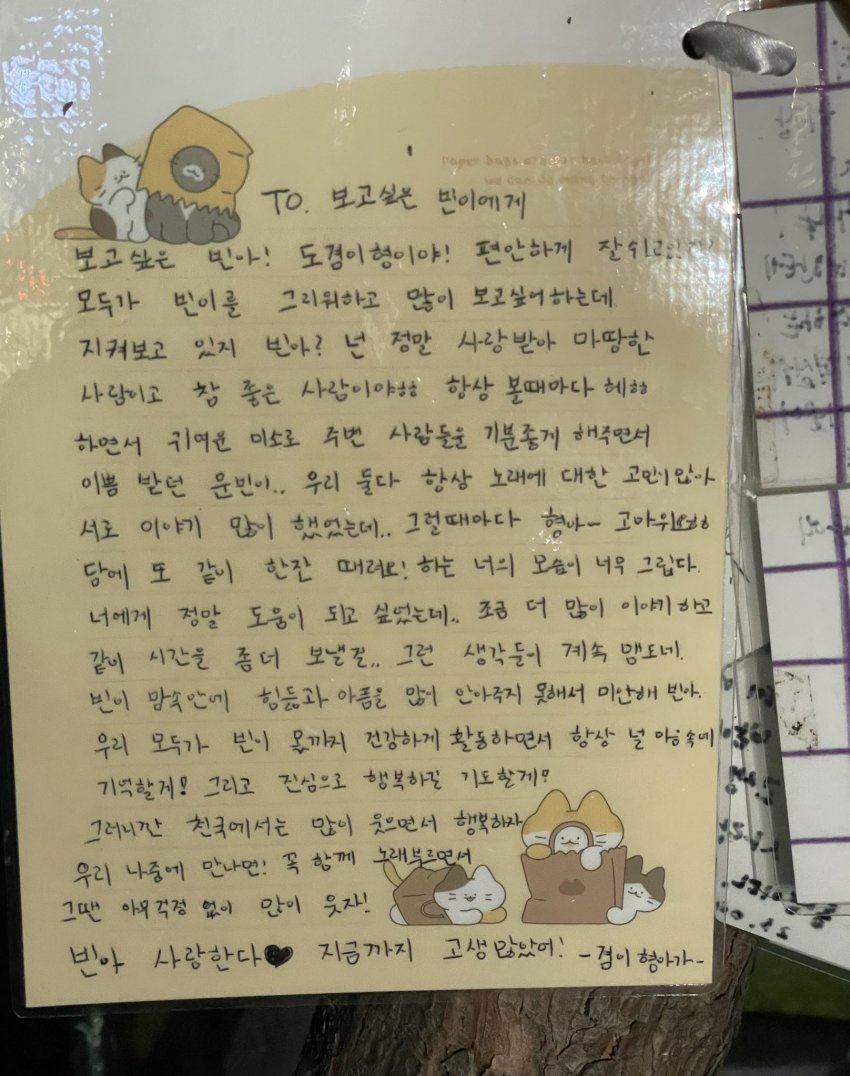 Paper bags are our
we can do
TO. 보고싶은 빈이에게
보고싶은 빈아! 도겸이형이야! 편안하게 잘 쉬고
모두가 빈이를 그리워하고 많이 보고싶어하는데
지켜보고 있지 빈아? 넌 정말 사랑받아 마땅한
사람이고 참 좋은 사람이야ㅎㅎ 항상 볼때마다 헤ㅎㅎ
하면서 귀여운 미소로 주변 사람들을 기분좋게 해주면서
이쁨 받던 문빈이.. 우리 둘다 항상 노래에 대한 고민이 많아
서로 이야기 많이 했었는데.. 그럴때마다 형아~ 고마워요ㅎㅎ
담에 또 같이 한잔 때려요! 하는 너의 모습이 너무 그립다.
너에게 정말 도움이 되고 싶었는데.. 조금 더 많이 이야기하고
같이 시간을 좀더 보낼걸.. 그런 생각들이 계속 맴도네.
빈이 맘속안에 힘듦과 아픔을 많이 안아주지 못해서 미안해 빈아.
우리 모두가 빈이 몫까지 건강하게 활동하면서 항상 널 마음속에
기억할게! 그리고 진심으로 행복하길 기도할게!
그러니깐 천국에서는 많이 웃으면서 행복하자
우리 나중에 만나면! 꼭 함께 노래부르면서
그땐 아무걱정 없이 많이 웃자!
빈아 사랑한다♥ 지금까지 고생많았어! -겸이 형아가-